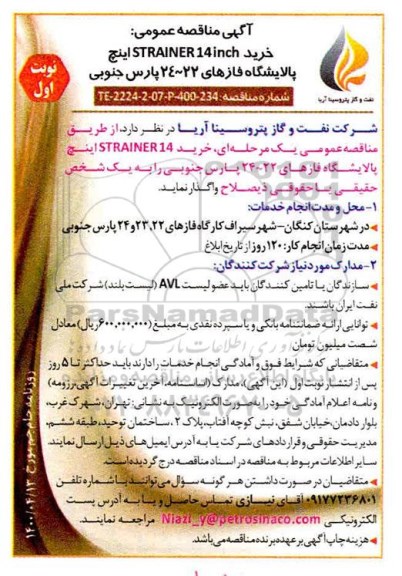 آگهی مناقصه عمومی:
خرید STRAINER 14 inch اینچ
پالایشگاه فازهای ۲۲~۲۴ پارس جنوبی
نوبت
اول
نفت و گاز پتروسینا آریا
شماره مناقصه: TE-2224-2-07-P-400-234
شرکت نفت و گاز پتروسینا آریا در نظر دارد، از طریق
مناقصه عمومی یک مرحله‌ای، خرید STRAINER 14 اینچ
پالایشگاه فازهای ۲۲-۲۴ پارس جنوبی را به یک شخص
حقیقی یا حقوقی ذیصلاح واگذار نماید.
۱- محل و مدت انجام خدمات:
در شهرستان کنگان-شهر سیراف کارگاه فازهای ۲۳،۲۲ و ۲۴ پارس جنوبی
مدت زمان انجام کار: ۱۲۰ روز از تاریخ ابلاغ
۲- مدارک مورد نیاز شرکت کنندگان:
سازندگان یا تامین کنندگان باید عضو لیست AVL (لیست بلند) شرکت ملی
نفت ایران باشند.
توانایی ارائه ضمانتنامه بانکی و یا سپرده نقدی به مبلغ (۶۰۰,۰۰۰,۰۰۰ ریال) معادل
شصت میلیون تومان
متقاضیانی که شرایط فوق و آمادگی انجام خدمات را دارند باید حداکثر تا ۵ روز
پس از انتشار نوبت اول (این آگهی)، مدارک (اساسنامه، آخرین تغییرات آگهی، رزومه)
و نامه اعلام آمادگی خود را به صورت الکترونیک به نشانی: تهران، شهرک غرب،
بلوار دادمان، خیابان شفق، نبش کوچه آفتاب، پلاک ۲، ساختمان توحید، طبقه ششم،
مدیریت حقوقی و قراردادهای شرکت یا به آدرس ایمیل‌های ذیل ارسال نمایند.
سایر اطلاعات مربوط به مناقصه در اسناد مناقصه درج گردیده است.
متقاضیان در صورت داشتن هر گونه سؤال می‌توانند با شماره تلفن
۰۹۱۷۷۲۳۶۸۰۱ آقای نیازی تماس حاصل و یا به آدرس پست
الکترونیکی Niazi_y@petrosinaco.com مراجعه نمایند.
هزینه چاپ آگهی بر عهده برنده مناقصه می‌باشد.
روزنامه جام جم مورخ ۱۴۰۰/۰۴/۱۳
ParsNamadData